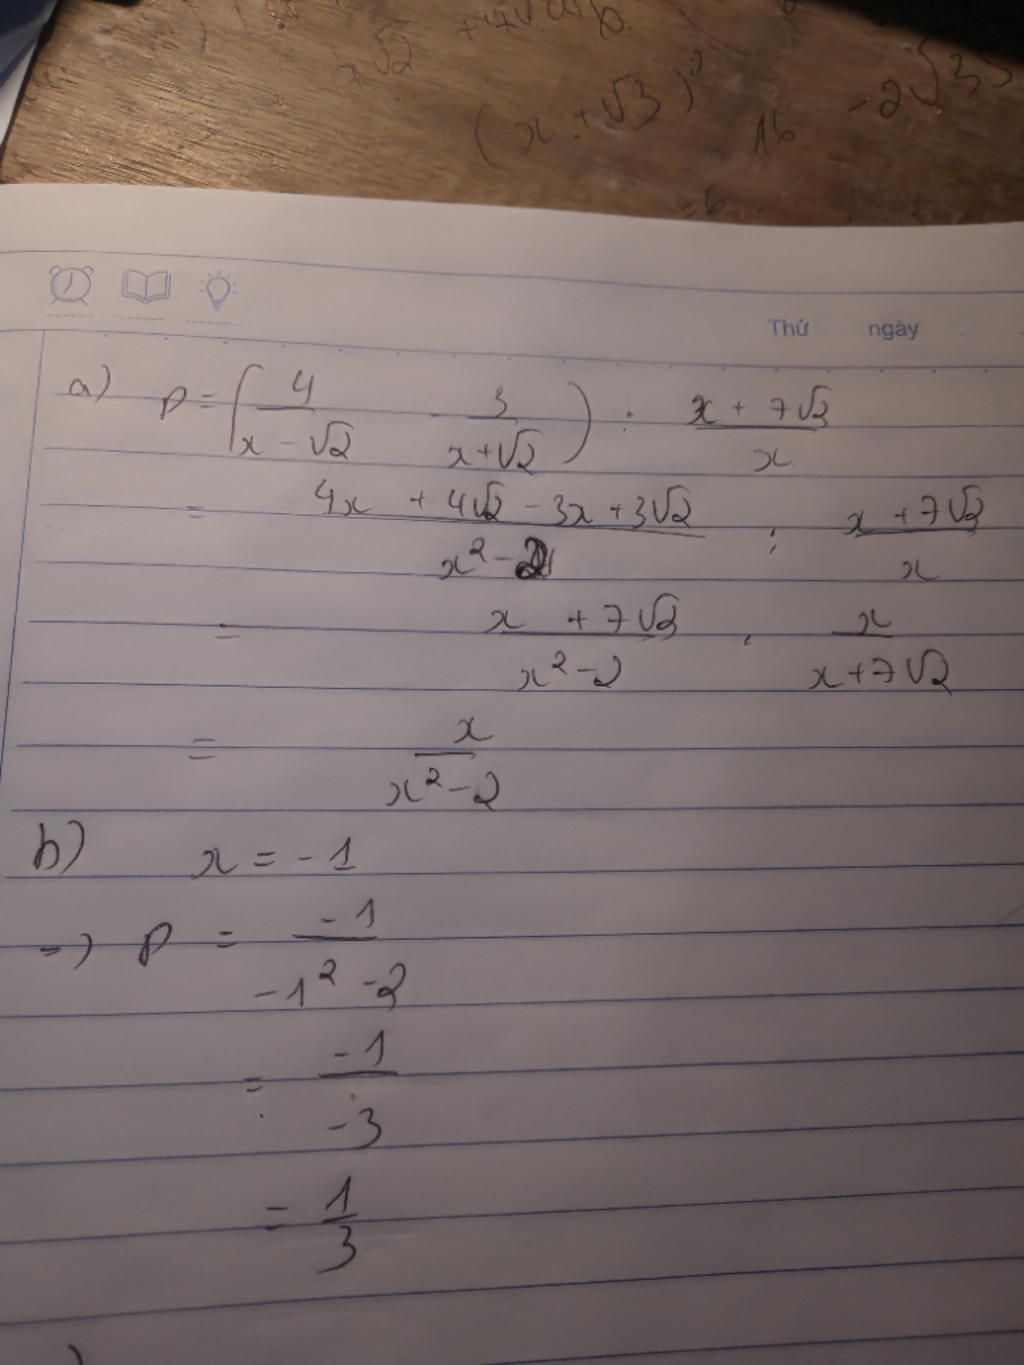 +4√
x√2
(x+√3)²
16
-2√3
=6
Thứ ngày
a) P = ( 4/(x-√2) - 3/(x+√2) ) : (x+7√2)/x
= (4x + 4√2 - 3x + 3√2)/(x²-2) : (x+7√2)/x
= (x + 7√2)/(x²-2) . x/(x+7√2)
= x/(x²-2)
b) x = -1
=) P = -1/(-1² -2)
= -1/-3
= 1/3